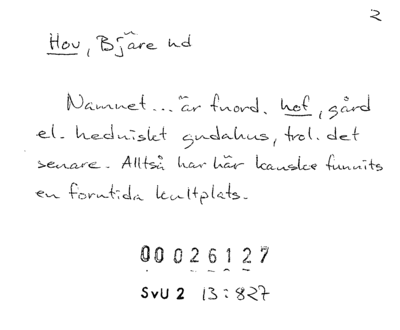 2
Hov, Bjäre hd
Namnet... är fnord. hof, gård
el. hedniskt gudahus, trol. det
senare. Alltså har här kanske funnits
en forntida kultplats.
00026127
SvU2 13:827